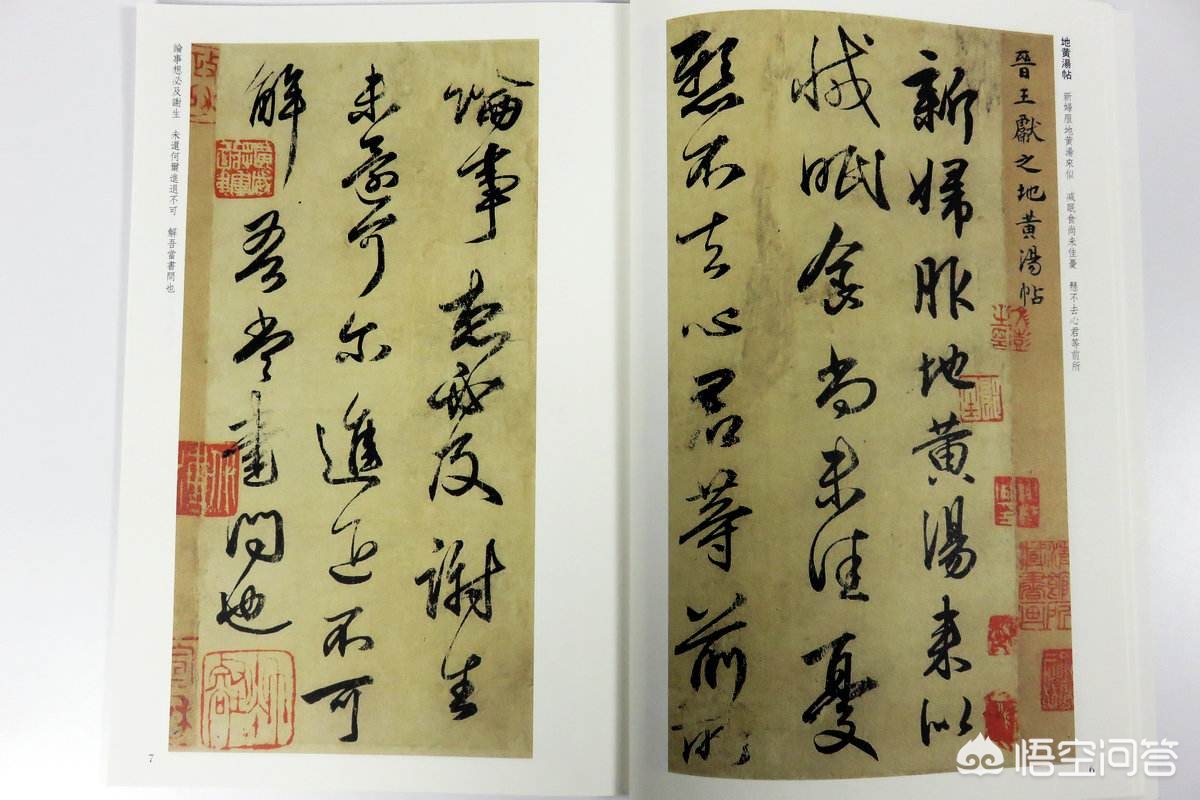 地黄湯帖 新婦服地黄湯來似 减眠食尚未佳憂 懸不去心君等前所
晉王獻之地黄湯帖
新婦服地黄湯來似
减眠食尚未佳憂
懸不去心君等前所
論事想必及謝生
未還何尔進退不可
解吾當書問也
論事想必及謝生 未還何爾進退不可 解吾當書問也
7
悟空问答